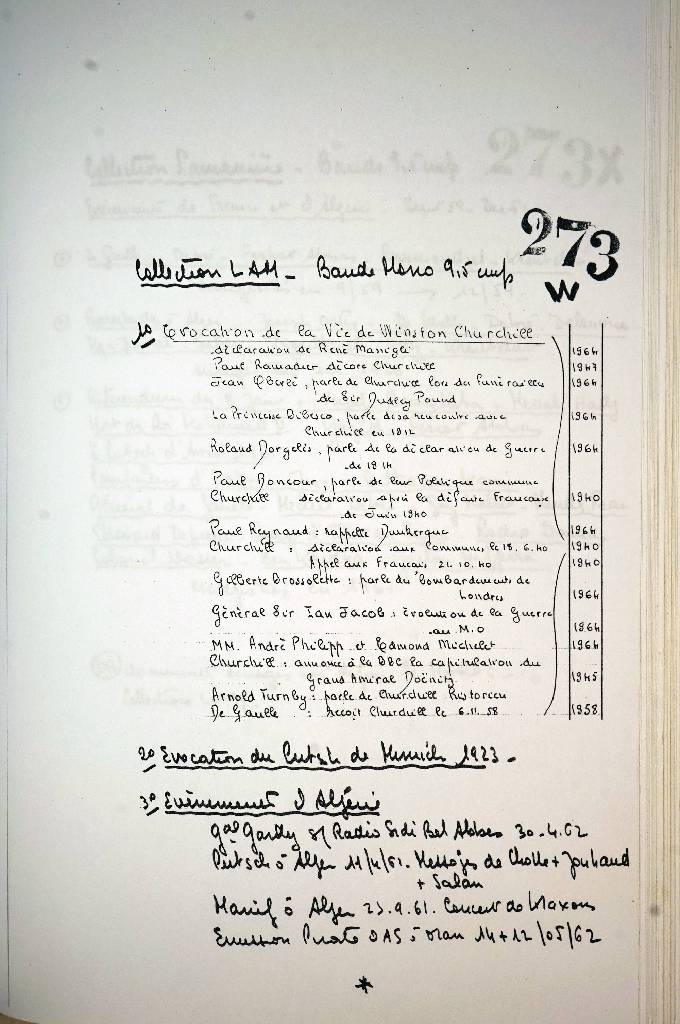 273
W
Collection LAM - Bande Mono 9,5 cmp
1º Evocation de la Vie de Winston Churchill
déclaration de René Massigli 1964
Paul Ramadier décore Churchill 1947
Jean Oberlé, parle de Churchill lors des funérailles 1964
de Sir Dudley Pound
La Princesse Bibesco, parle de sa rencontre avec 1964
Churchill en 1912
Roland Dorgelès, parle de la déclaration de Guerre 1964
de 1914
Paul Boncour, parle de leur Politique commune
Churchill déclaration après la défaite Française 1940
de Juin 1940
Paul Reynaud : rappelle Dunkerque 1964
Churchill : déclaration aux Communes le 18.6.40 1940
Appel aux Français 21.10.40 1940
Gilberte Brossolette : parle du bombardements de
Londres 1964
Général Sir Ian Jacob : évolution de la Guerre
au M.O 1964
MM. André Philipp et Edmond Michelet 1964
Churchill : annonce à la BBC la capitulation du
Grand Amiral Doënitz 1945
Arnold Turnby : parle de Churchill historien
De Gaulle : reçoit Churchill le 6.11.58 1958
2º Evocation du Putsh de Munich 1923 -
3º Evènement d'Algérie
Gal Gardy s/ Radio Sidi Bel Abbes 30.4.62
Putsch à Alger 11/4/61. Messages de Challe + Jouhaud
+ Salan
Manif à Alger 23.9.61. Concert de Klaxons
Emission Pirate OAS à Oran 14+12/05/62
*